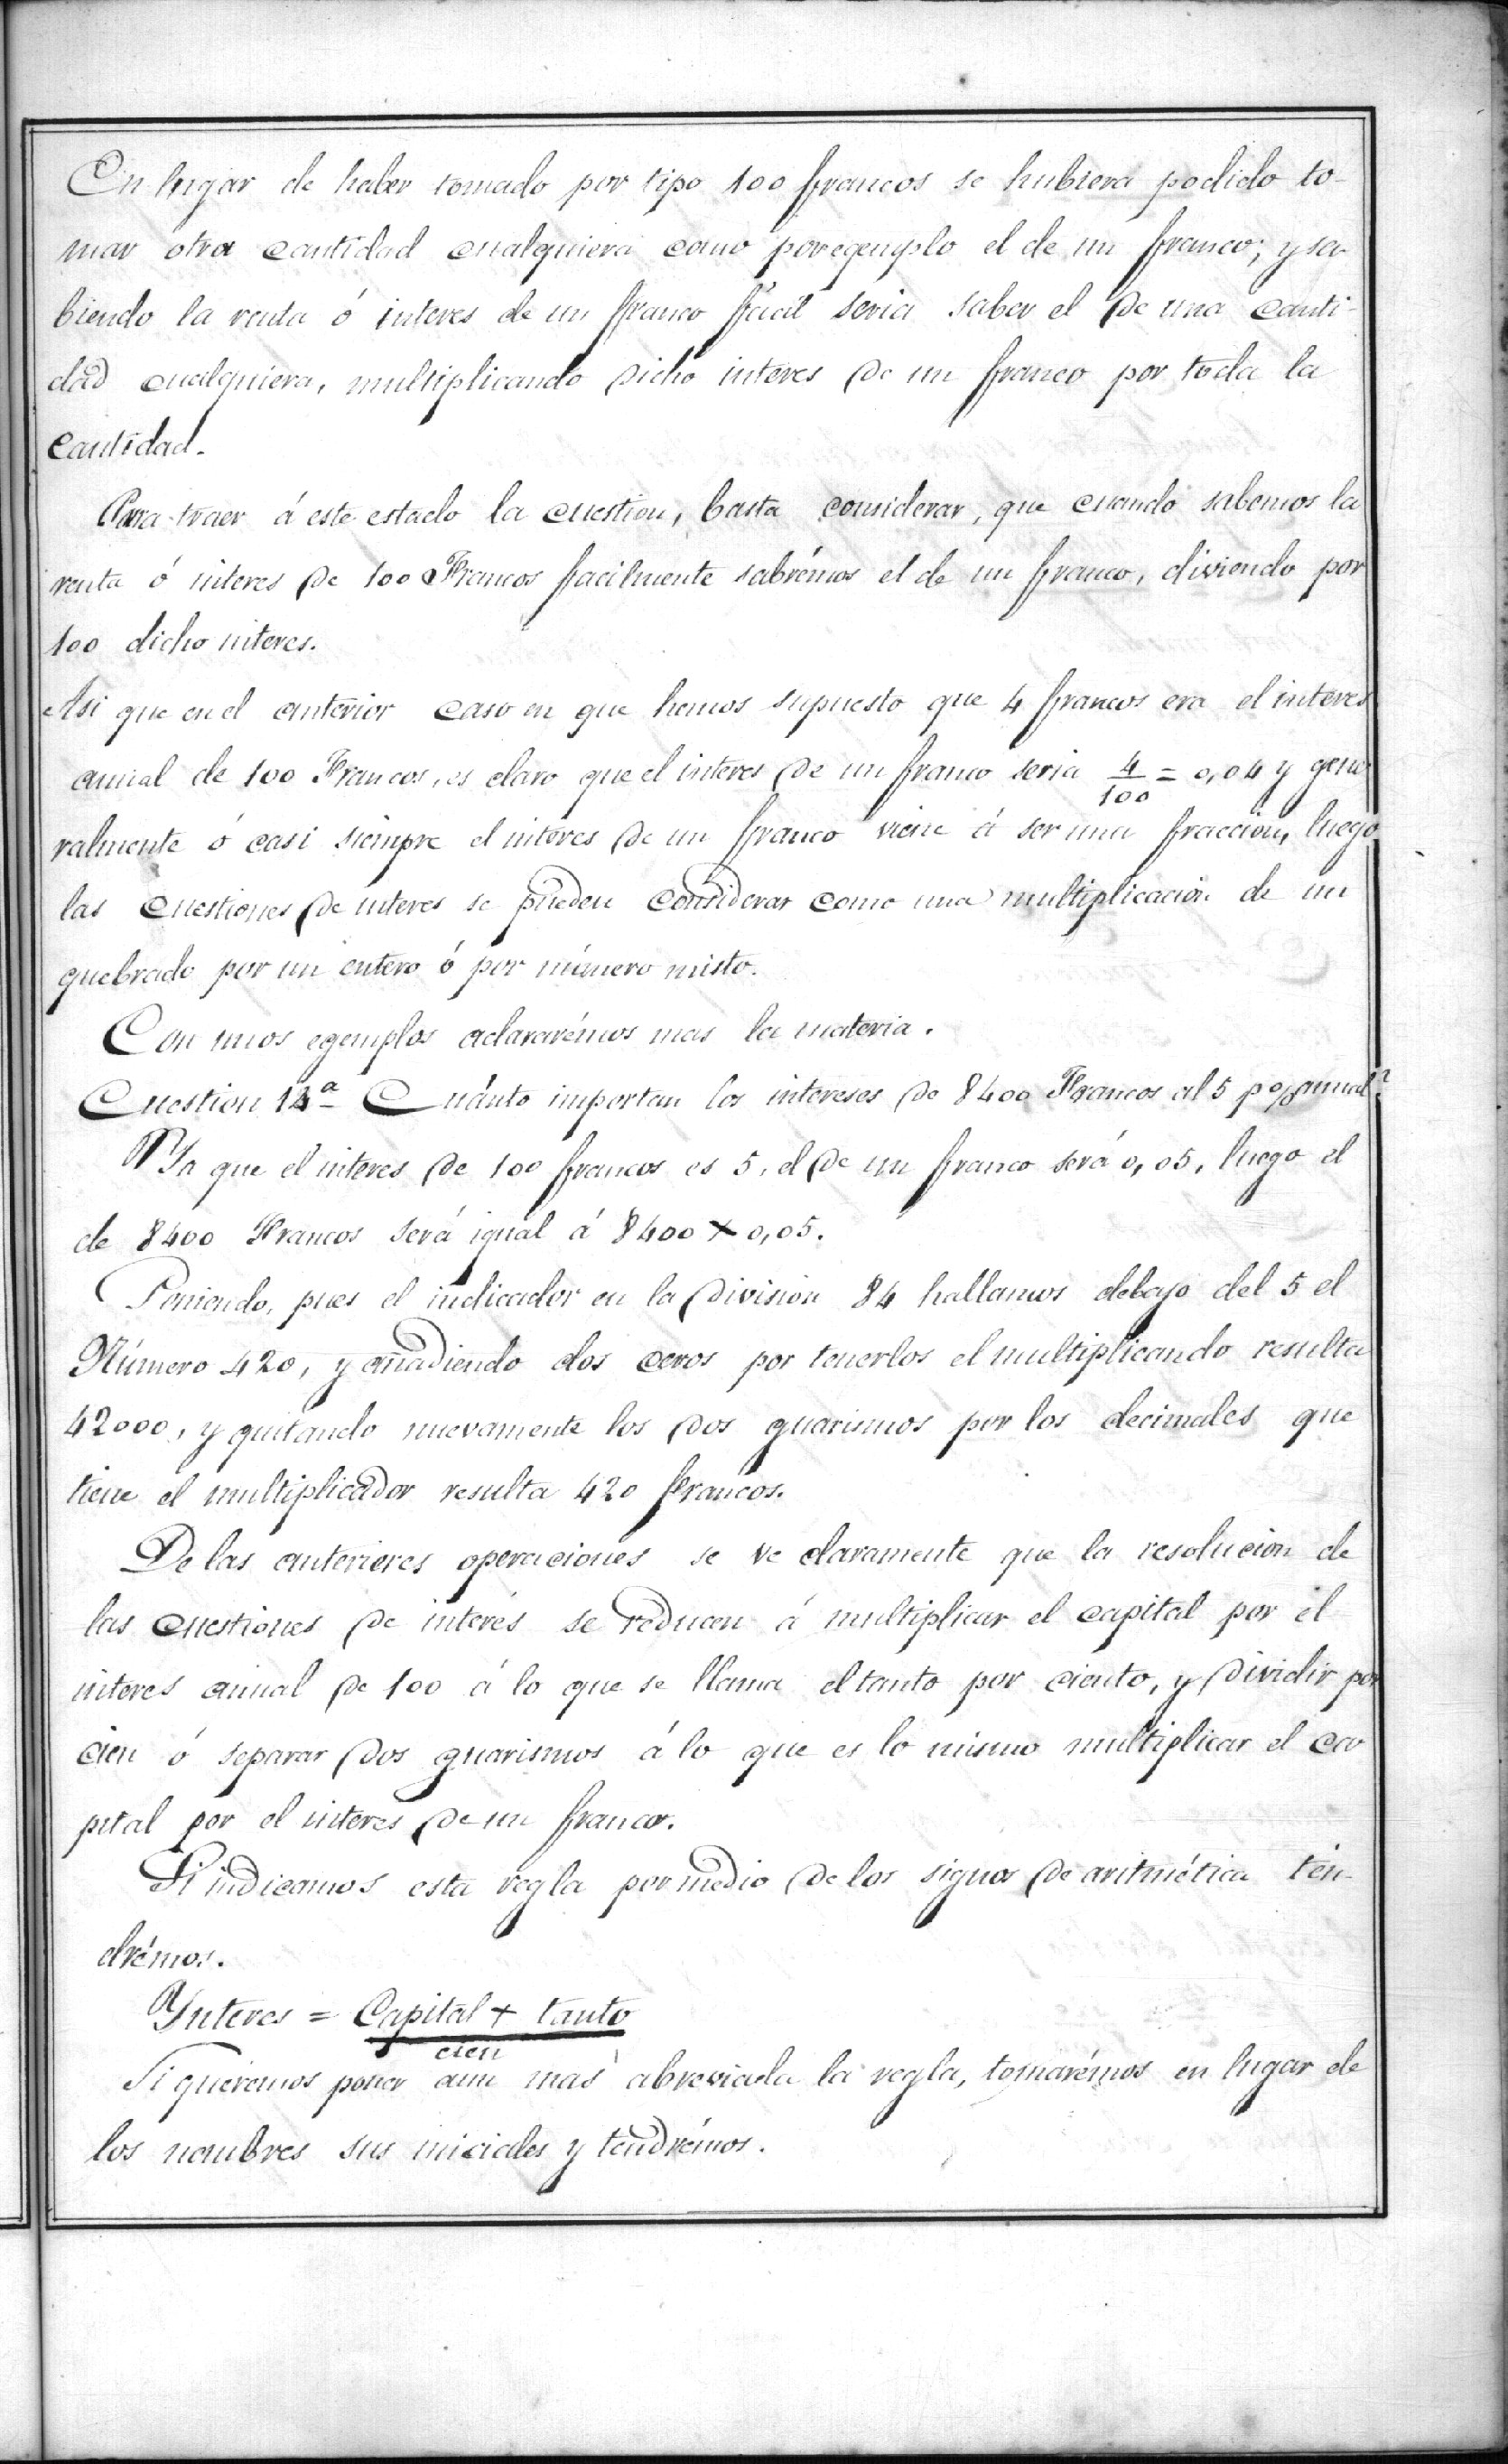 En lugar de haber tomado por tipo 100 francos se hubiera podido to-
mar otra cantidad cualquiera como por egemplo el de un franco; y sa
biendo la renta ó interes de un franco fácil seria saber el de una canti-
dad cualquiera, multiplicando dicho interes de un franco por toda la
cantidad.
Para traer á este estado la cuestion, basta considerar, que cuando sabemos la
renta ó interes de 100 Francos facilmente sabrémos el de un franco, diviendo por
100 dicho interes.
Asi que en el anterior caso en que hemos supuesto que 4 francos era el interes
anual de 100 Francos, es claro que el interes de un franco seria 4/100 = 0,04 y gene
ralmente ó casi siempre el interes de un franco viene á ser una fraccion, luego
las cuestiones de interes se pueden considerar como una multiplicacion de un
quebrado por un entero ó por número misto.
Con unos egemplos aclararémos mas la materia.
Cuestion 14ª Cuánto importan los intereses de 8400 Francos al 5 p% anual?
Ya que el interes de 100 francos es 5, el de un franco será 0,05, luego el
de 8400 Francos será igual á 8400 × 0,05.
Poniendo, pues el indicador en la division 84 hallamos debajo del 5 el
Número 420, y añadiendo dos ceros por tenerlos el multiplicando resulta
42000, y quitando nuevamente los dos guarismos por los decimales que
tiene el multiplicador resulta 420 francos.
De las anteriores operaciones se ve claramente que la resolucion de
las cuestiones de interés se reducen á multiplicar el capital por el
interes anual de 100 á lo que se llama el tanto por ciento, y dividir por
cien ó separar dos guarismos á lo que es lo mismo multiplicar el ca
pital por el interes de un franco.
Si indicamos esta regla por medio de los signos de aritmética ten-
drémos.
Ynteres = Capital + tanto
cien
Si queremos poner aun mas abreviada la regla, tomarémos en lugar de
los nombres sus iniciales y tendrémos.